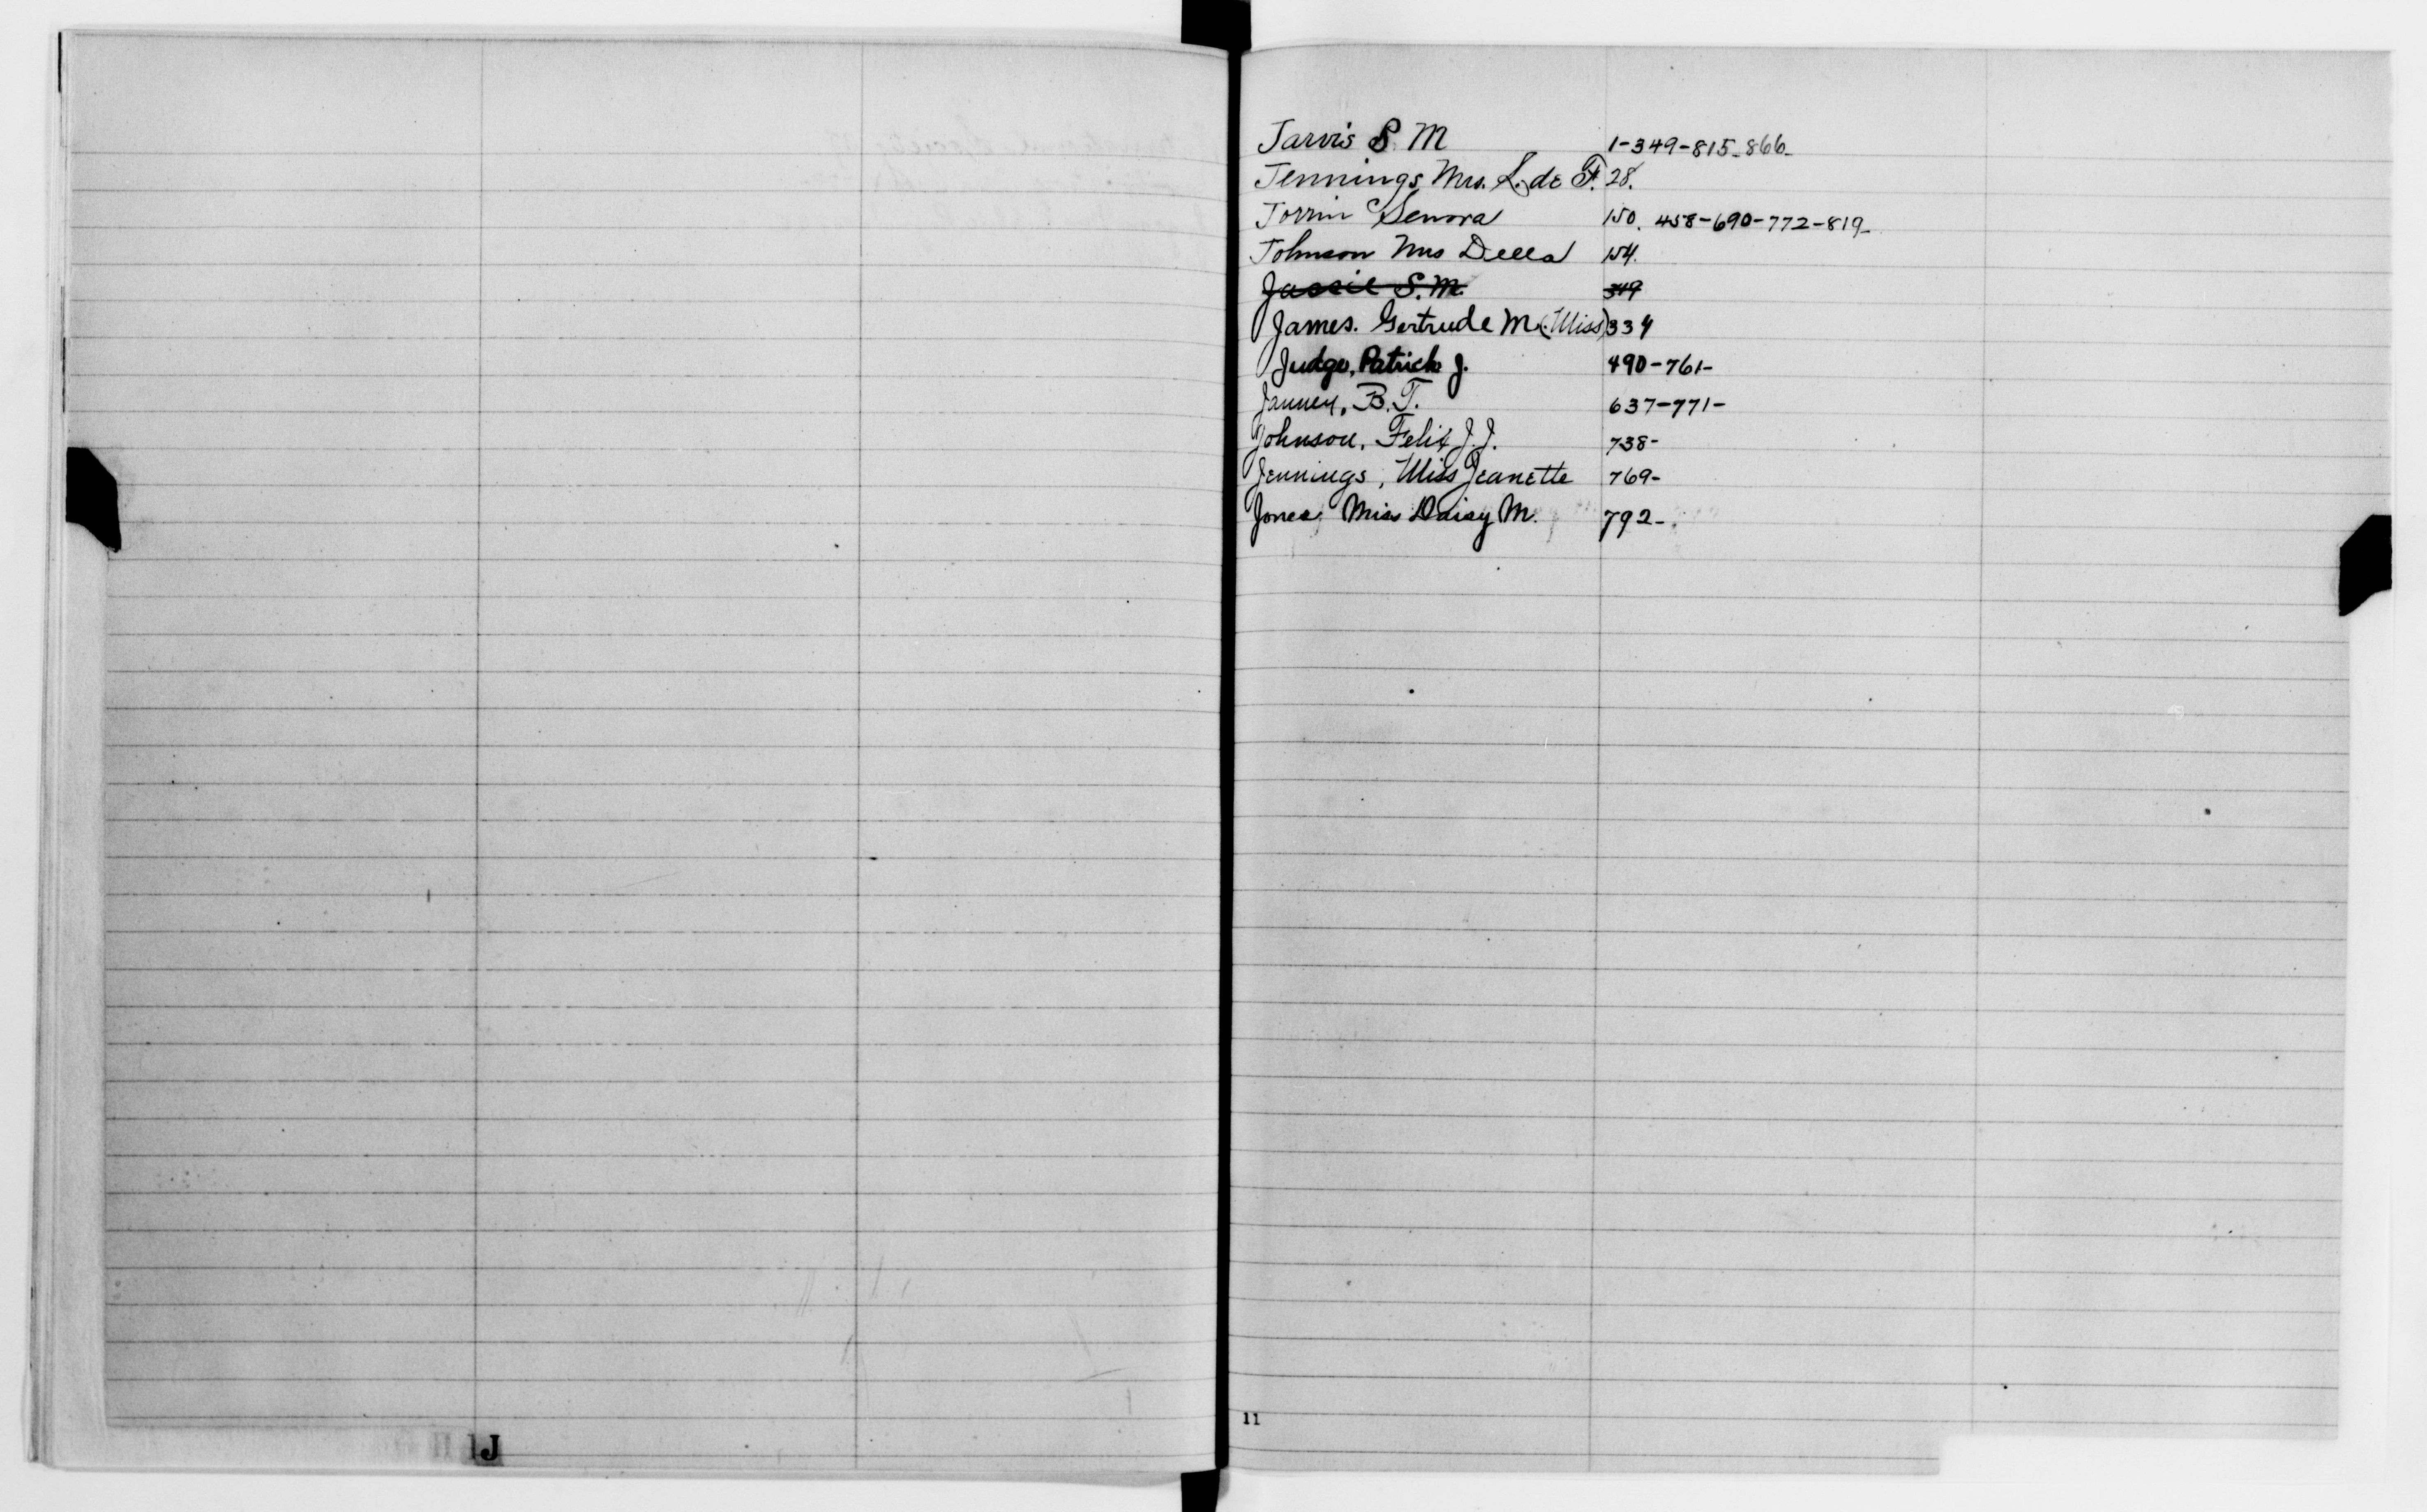 Jarvis S M 1-349-815-866-
Jennings Mrs. L. de F. 28.
Jorrin Senora 150. 458-690-772-819-
Johnson Mrs Della 154.
S. M. 349
James. Gertrude M. (Miss) 334
Judge, Patrick J. 490-761-
Janney, B. T. 637-771-
Johnson, Felix J. J. 738-
Jennings, Miss Jeanette 769-
Jones Miss Daisy M. 792-
11
J